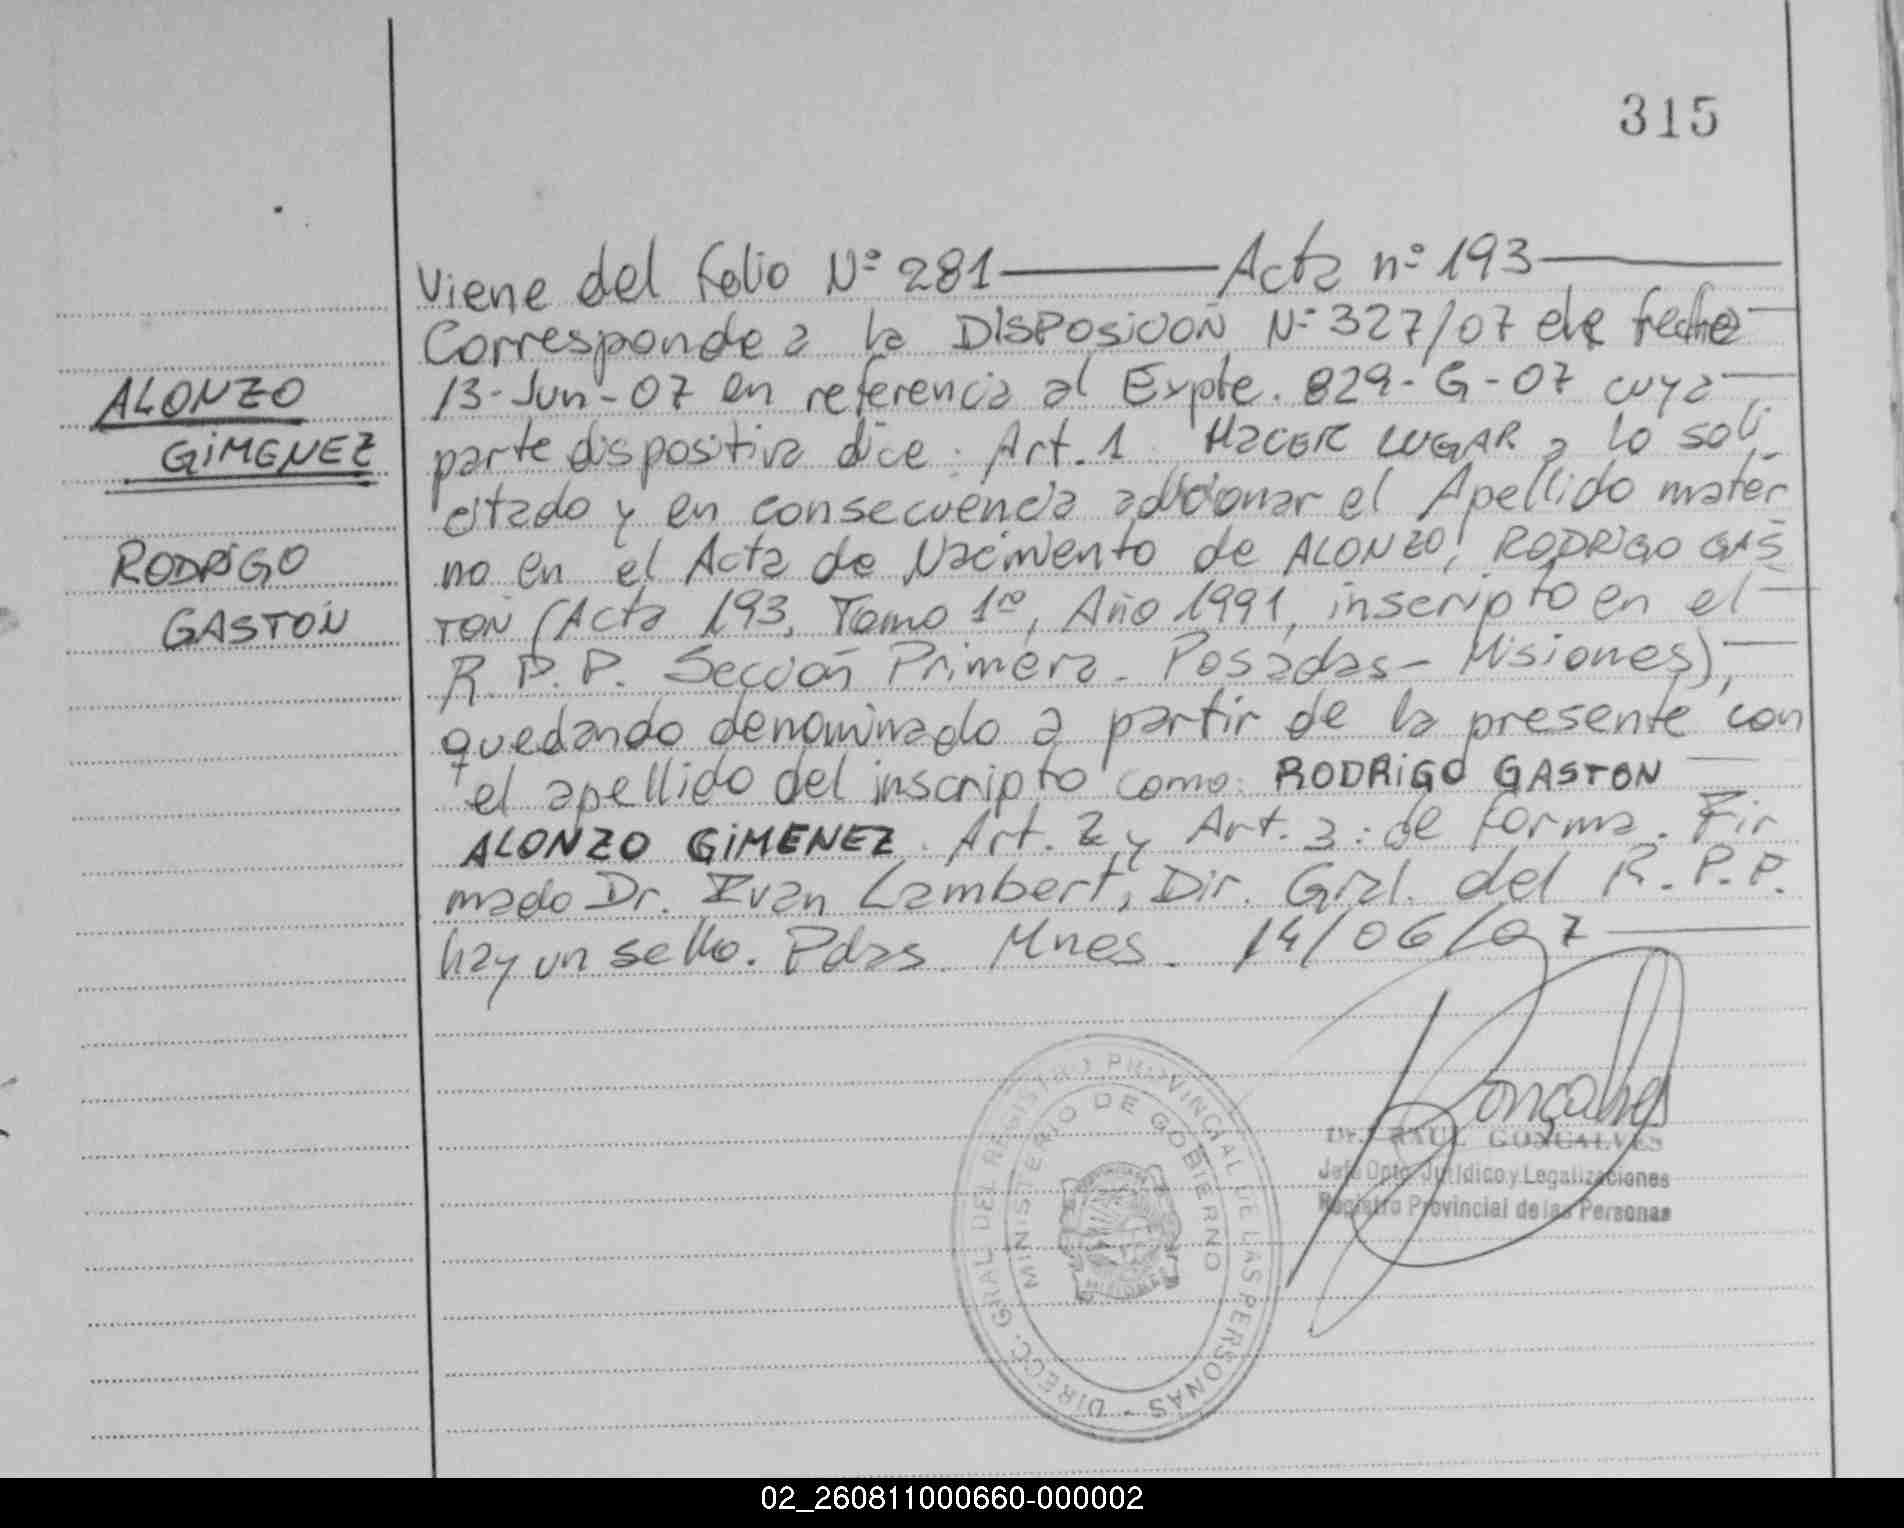 315
Viene del Folio Nº 281 — Acta nº 193 —
Corresponde a la DISPOSICION Nº 327/07 de fecha —
13-Jun-07 en referencia al Expte. 829-G-07 cuya —
parte dispositiva dice: Art. 1 HACER LUGAR a lo soli
citado y en consecuencia adicionar el Apellido mater
no en el Acta de Nacimiento de ALONZO, RODRIGO GAS
TON (Acta 193, Tomo 1º, Año 1991, inscripto en el —
R.P.P. Sección Primera - Posadas - Misiones), —
quedando denominado a partir de la presente con
el apellido del inscripto como: RODRIGO GASTON —
ALONZO GIMENEZ. Art. 2 y Art. 3: de forma. Fir
mado Dr. Ivan Lambert, Dir. Gral. del R.P.P.
hay un sello. Pdas. Mnes. 14/06/07 —
ALONZO
GIMENEZ
RODRIGO
GASTON
Gonçalves
Dr. RAUL GONCALVES
Jefe Dpto. Jurídico y Legalizaciones
Registro Provincial de las Personas
DIRECC. GRAL DEL REGISTRO PROVINCIAL DE LAS PERSONAS -
MINISTERIO DE GOBIERNO
MISIONES
02_260811000660-000002